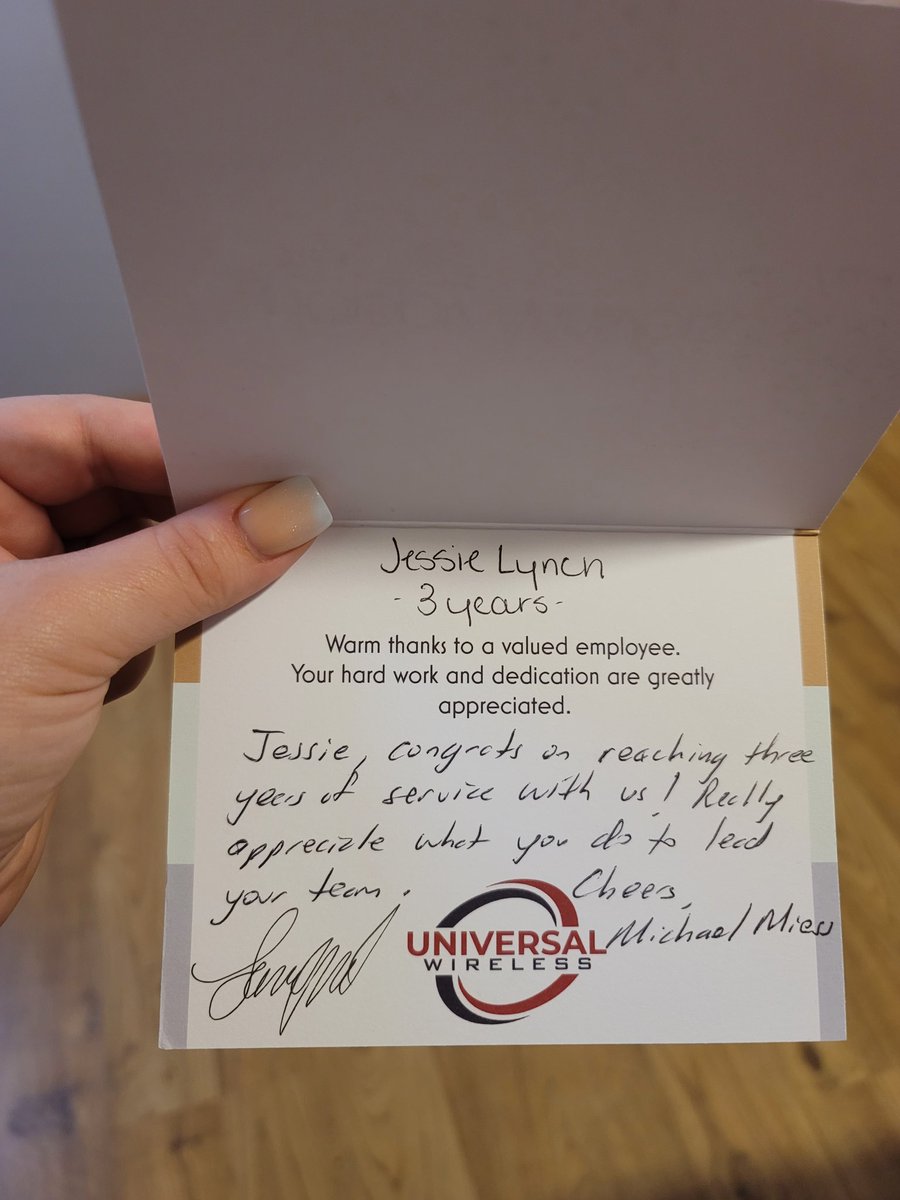 Jessie Lynch
- 3 years -
Warm thanks to a valued employee.
Your hard work and dedication are greatly
appreciated.
Jessie, congrats on reaching three
years of service with us! Really
appreciate what you do to lead
your team.
Cheers,
Michael Miess
UNIVERSAL
WIRELESS